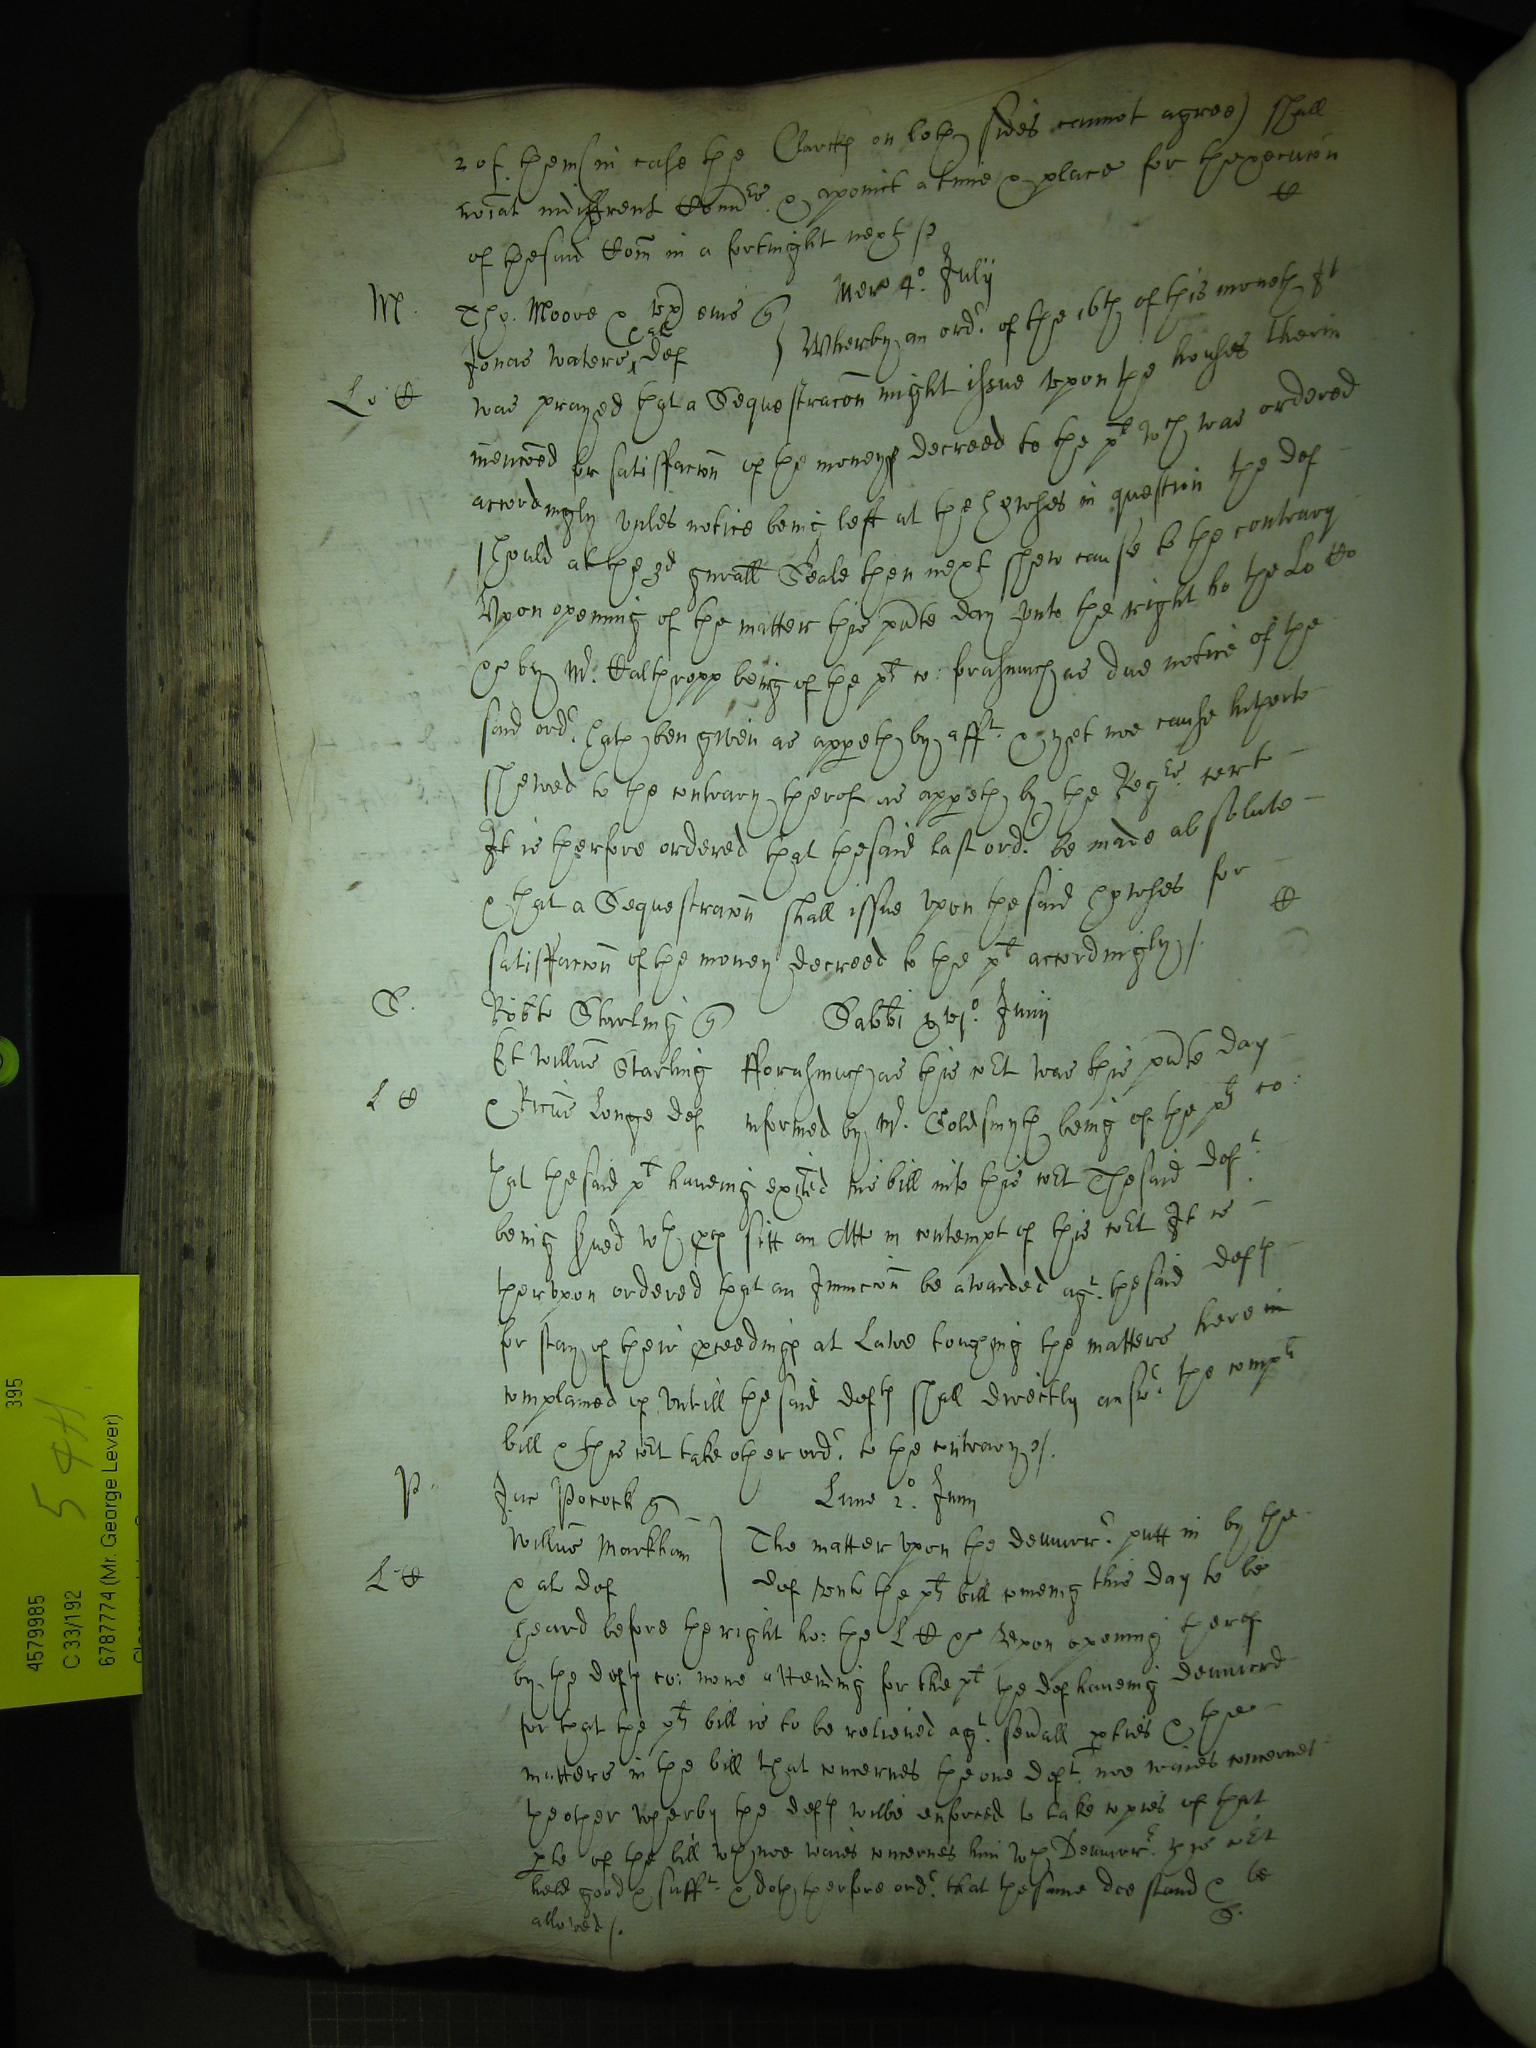 2 of them (in case the Clarckes on both sides cannot agree) shall
noiat indifferent Comrs. & apoinct a time & place for thexecucon
of thesaid Com in a fortnight next /
C
M.
Tho. Moore & ux eius q
Mer 4o. Julij
Jonas Waters & al def
Wherby an ordr. of the 16th of this moneth It
Lo: C
was prayed that a Sequestracon might issue upon the houses therin
mencoed for satisfaccon of the moneys decreed to the plt wch was ordered
accordingly unles notice being left at the howses in question the def
should at the 3d gnrall Seale then next shew cause to the contrary
Upon opening of the matter this pnte day unto the right ho the Lo Co
&c by Mr. Calthropp being of the plt co: forasmuch as due notice of the
said ordr. hath ben given as appeth by afft. & yet noe cause hitherto
shewed to the contrary therof as appeth by the Regrs. cert
It is therfore ordered that thesaid last ordr. be made absolute
& that a Sequestracon shall issue upon thesaid howses for
satisfaccon of the money decreed to the plt accordingly /.
C
S.
Robte Starling q
Sabbi Junij
Et Willus Starling
fforasmuch as this cort was this pnte day
L C
& Ricus Longe def
informed by Mr. Goldsmyth being of the plts co:
that thesaid plt haueing exited his bill into this cort Thesaid deft.
being sued wth pces sitt an Att in contempt of this cort It is
therupon ordered that an Iniuncon be awarded agt. thesaid defts
for stay of their pceedings at Lawe touching the matters here in
complained of untill thesaid defts shall directly answr. the complts
bill & this cort take other ordr. to the contrary /.
P.
Jac Pocock q
Lune 2o. Junij
Willus Markham
The matter upon the demurr. putt in by the
L C
& al def
def unto the plts bill comeing this day to be
heard before the right ho: the L C &c Upon opening therof
by the defts co: none attending for the plt the def haueing demurrd
for that the plts bill is to be relieued agt. seuall pties & the
matters in the bill that concernes the one deft. noe waies concernes
the other wherby the defts wilbe enforced to take copies of that
pte of the bill wch noe waies concernes him wch Demurr. this cort
held good & sufft. & doth therfore ordr. that thesame doe stand & be
allowed /.
395
5 411
4579985
C 33/192
6787774 (Mr. George Lever)